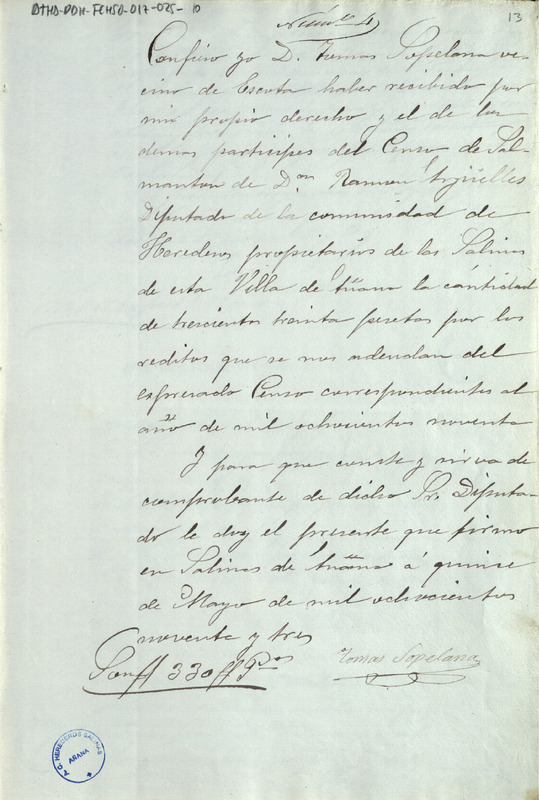 ATHA-DAH-FCHSA-017-025-10
13
Núm.º 4
Confieso yo D. Tomas Sopelana ve-
cino de Escota haber recibido por
mi propio derecho y el de los
demas participes del Censo de Sal-
manton de D.on Ramon Argüelles
Diputado de la comunidad de
Herederos propietarios de las Salinas
de esta Villa de Añana la cantidad
de trescientas treinta pesetas por los
reditos que se nos adeudan del
espresado Censo correspondientes al
año de mil ochocientos noventa
Y para que conste y sirva de
comprobante de dicho Sr. Diputa-
do le doy el presente que firmo
en Salinas de Añana á quinse
de Mayo de mil ochocientos
noventa y tres
Son // 330 // Ptas
Tomas Sopelana
A. C. HEREDEROS SALINAS
AÑANA